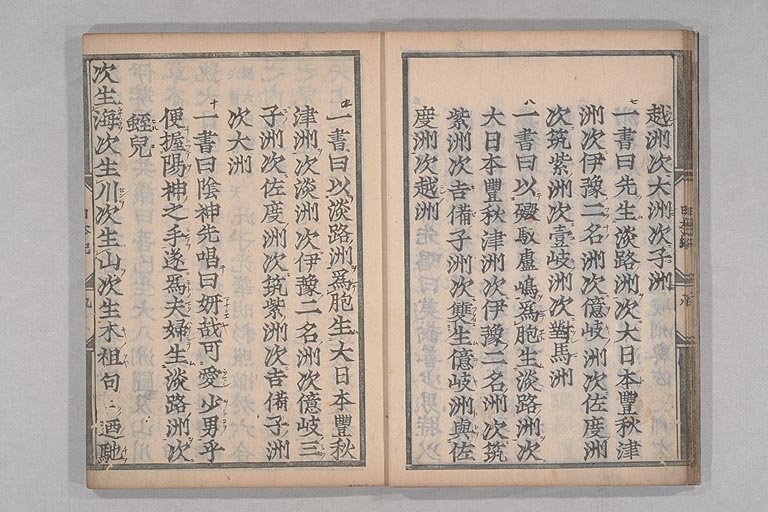 越洲次大洲次子洲
七一書曰先生淡路洲次大日本豐秋津
洲次伊豫二名洲次億岐洲次佐度洲
次筑紫洲次壹岐洲次對馬洲
八一書曰以磤馭盧嶋爲胞生淡路洲次
大日本豐秋津洲次伊豫二名洲次筑
紫洲次吉備子洲次雙生億岐洲與佐
度洲次越洲
一書曰以淡路洲爲胞生大日本豐秋
津洲次淡洲次伊豫二名洲次億岐三
子洲次佐度洲次筑紫洲次吉備子洲
次大洲
十一書曰陰神先唱曰妍哉可愛少男乎
便握陽神之手遂爲夫婦生淡路洲次
蛭兒
次生海次生川次生山次生木祖句